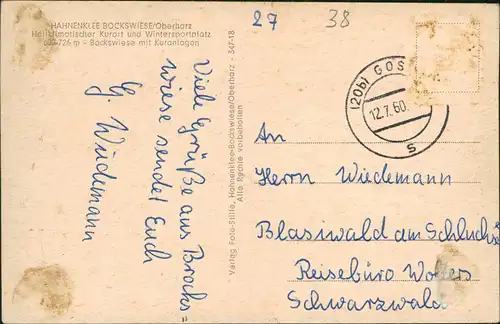 HAHNENKLEE BOCKSWIESE/Oberharz
Heilklimatischer Kurort und Wintersportplatz
600-726 m - Bockswiese mit Kuranlagen
27
38
Viele Grüße aus Brocks=
wiese sendet Euch
G. Wüdemann
Verlag Foto-Stille, Hahnenklee-Bockswiese/Oberharz - 347-18
Alle Rechte vorbehalten
(20b) GOS
12.7.60.
s
An
Herrn Wiedemann
Blasiwald am Schluchs
Reisebüro Wolters
Schwarzwald